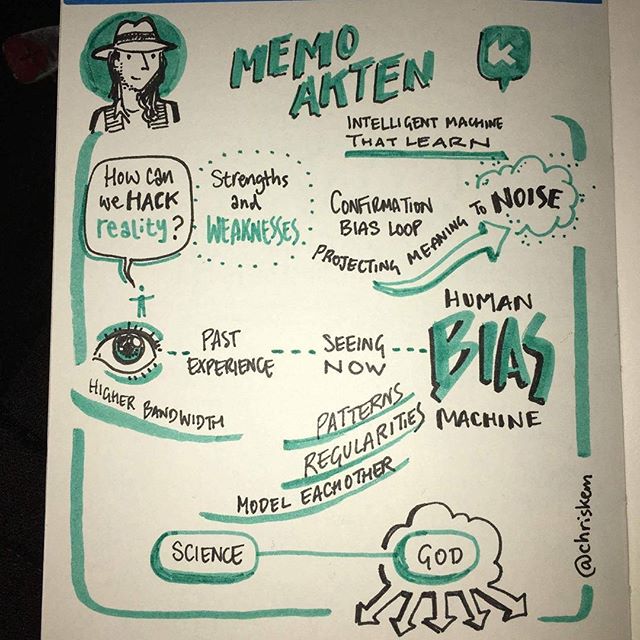 MEMO
AKTEN
K
INTELLIGENT MACHINE
THAT LEARN
How can
we HACK
reality?
Strengths
and
WEAKNESSES
CONFIRMATION
BIAS LOOP
PROJECTING MEANING TO NOISE
PAST
EXPERIENCE
SEEING
NOW
HUMAN
BIAS
MACHINE
HIGHER BANDWIDTH
PATTERNS
REGULARITIES
MODEL EACHOTHER
SCIENCE
GOD
@chriskem